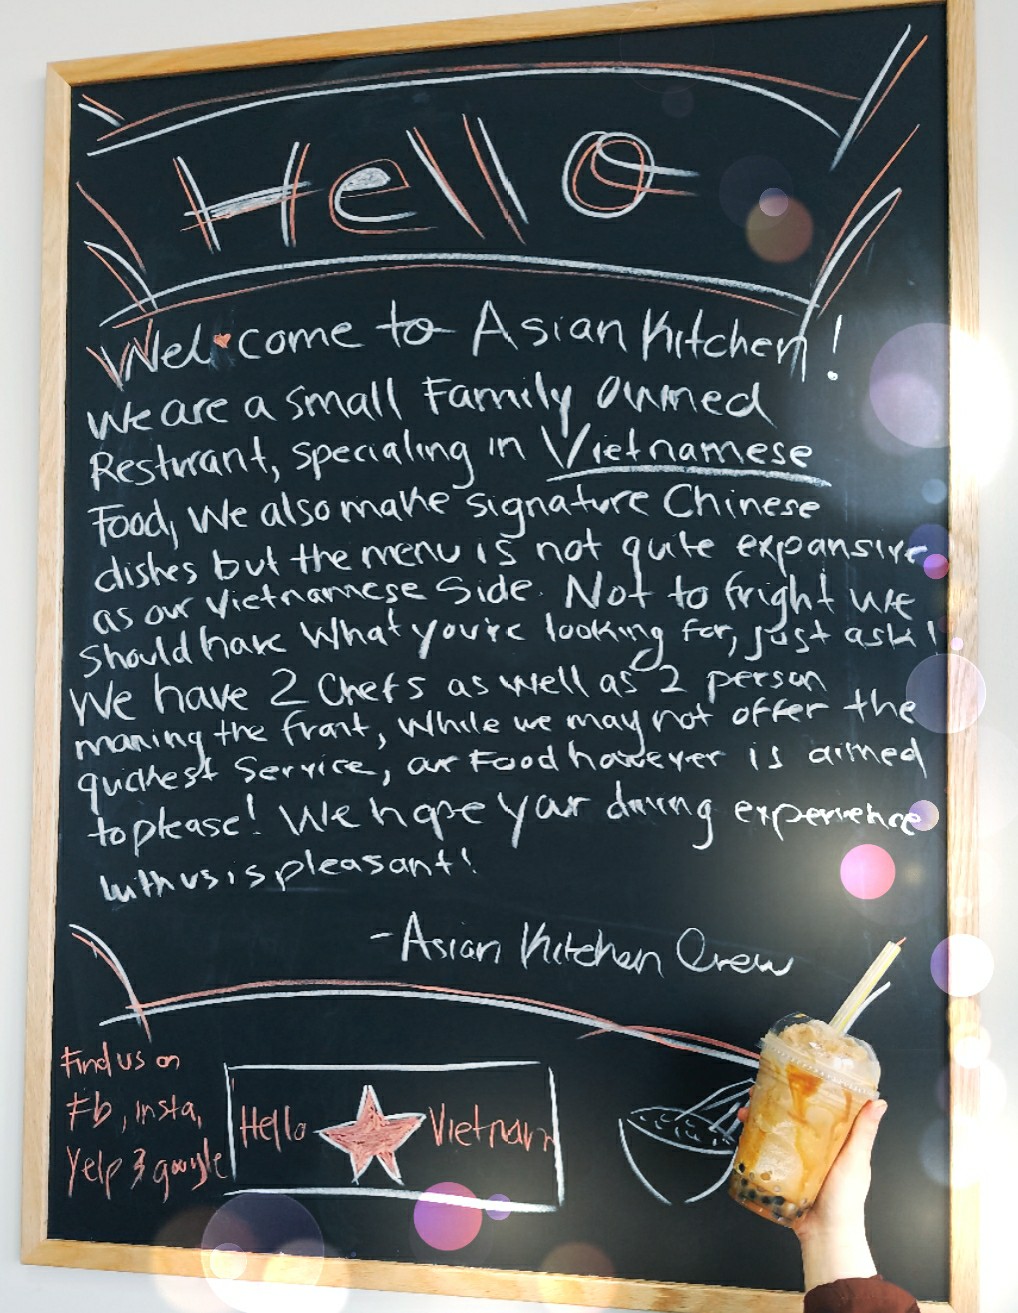 Hello
Welcome to Asian Kitchen!
We are a small Family owned
Resturant, specialing in Vietnamese
Food, We also make signature Chinese
dishes but the menu is not quite expansive
as our Vietnamese Side. Not to fright we
should have what you're looking for, just ask!
We have 2 Chefs as well as 2 person
maning the front, While we may not offer the
quickest Service, our Food however is aimed
to please! We hope your dining experience
with us is pleasant!
-Asian Kitchen Crew
Find us on
Fb, insta,
Yelp & google
Hello Vietnam